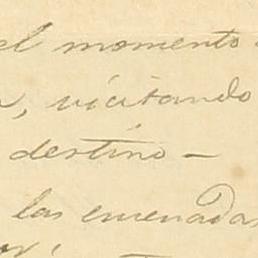 el momento
, visitando
destino —
las ensenadas